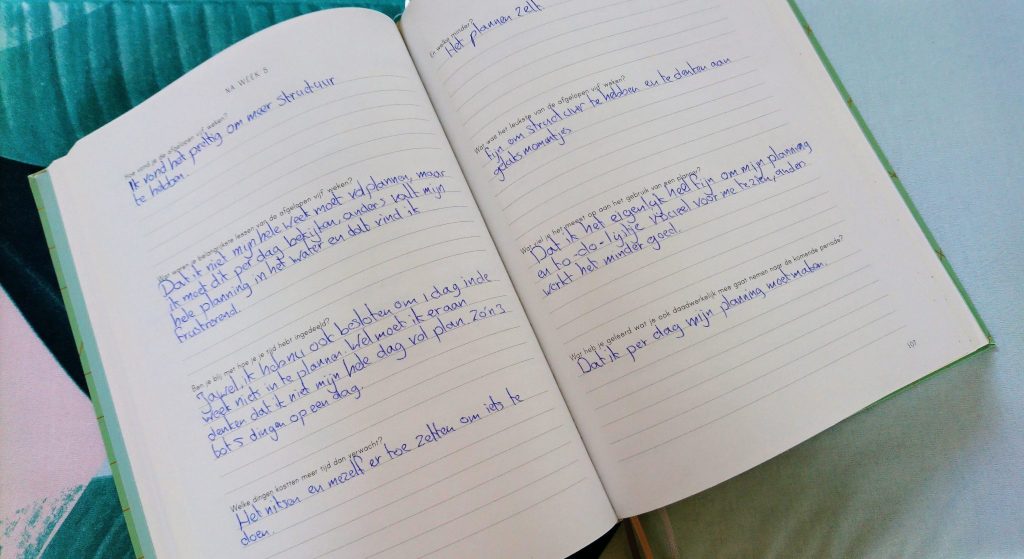 NA WEEK 5
Hoe vond je de afgelopen vijf weken?
Ik vond het prettig om meer structuur
te hebben.
Wat waren je belangrijkste lessen van de afgelopen vijf weken?
Dat ik niet mijn hele week moet vol plannen, maar
ik moet dit per dag bekijken, anders valt mijn
hele planning in het water en dat vind ik
frustrerend.
Ben je blij met hoe je je tijd hebt ingedeeld?
Jawel, ik heb nu ook besloten om 1 dag in de
week niets in te plannen. Wel moet ik eraan
denken dat ik niet mijn hele dag vol plan. Zo'n 3
tot 5 dingen op een dag.
Welke dingen kostten meer tijd dan verwacht?
Het nietsen en mezelf er toe zetten om iets te
doen.
En welke minder?
Het plannen zelf.
Wat was het leukste van de afgelopen vijf weken?
Fijn om structuur te hebben en te denken aan
geluksmomentjes
Wat viel je het meest op aan het gebruik van een planner?
Dat ik het eigenlijk heel fijn om mijn planning
en to-do-lijstje visueel voor me te zien, anders
werkt het minder goed.
Wat heb je geleerd wat je ook daadwerkelijk mee gaat nemen naar de komende periode?
Dat ik per dag mijn planning moet maken.
107